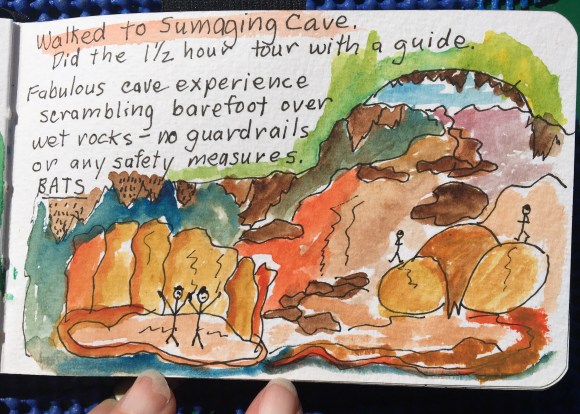 Walked to Sumaging Cave.
Did the 1½ hour tour with a guide.
Fabulous cave experience
scrambling barefoot over
wet rocks - no guardrails
or any safety measures.
BATS